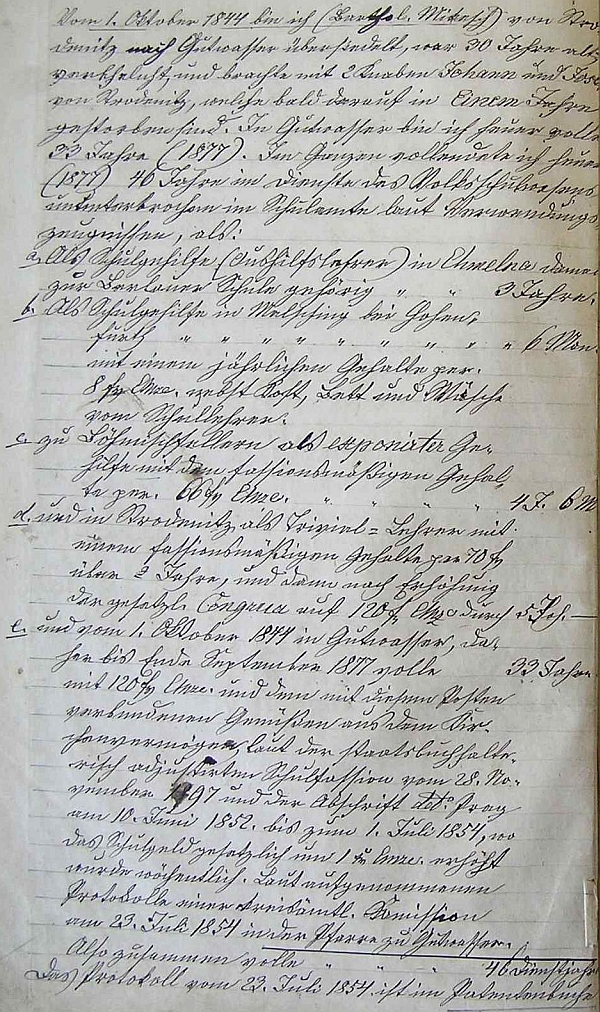 Vom 1. Oktober 1844 bin ich (Barthol. Mikesch) von Stro-
demitz nach Gutwasser übersiedelt, war 30 Jahre alt,
verehelicht, und brachte mit 2 Knaben Johann und Jose
von Strodenitz, welche bald darauf in Einem Jahre
gestorben sind. In Gutwasser bin ich heuer volle
33 Jahre (1877). Im Ganzen vollendete ich heuer
(1877) 46 Jahre im Dienste des Volksschulwesens
ununterbrochen im Schulamte laut Verwendungs-
zeugnissen, als:
a. Als Schulgehilfe (Aushilfslehrer) in Chmelna damals
zur Berlauer Schule gehörig " " 3 Jahre.
b. Als Schulgehilfe in Melsching bei Hohen-
furth " " " " " " " " " 6 Mon.
mit einem jährlichen Gehalte per.
8 fr Cmze. nebst Kost, Bett und Wäsche
vom Schullehrer.
c. zu Böhmischfellern als exponirter Ge-
hilfe mit dem fassionsmäßigen Gehal-
te per. 66 fr Cmze. " " " " 4 J. 6 M
d. und in Strodenitz als Trivial=Lehrer mit
einem fassionsmäßigen Gehalte per 70 fr
über 3 Jahre, und dann nach Erhöhung
der gesetzl. Congrua auf 120 fr Cmze durch 5 Jah. —
e. und vom 1. Oktober 1844 in Gutwasser, da-
her bis Ende September 1877 volle 33 Jahre
mit 120 fr Cmze. und dem mit diesem Posten
verbundenen Genüßen aus dem Kir-
chenvermögen, laut der staatsbuchhalte-
risch adjustirten Schulfassion vom 28. No-
vember 1797 und der Abschrift dto Prag
am 10. Juni 1852. bis zum 1. Juli 1854, wo
das Schulgeld gesetzlich um 1 kr Cmze. erhöht
wurde wöchentlich. Laut aufgenommenen
Protokolle einer kreisämtl. Komission
am 23. Juli 1854 in der Pfarre zu Gutwasser.
Also zusammen volle " " " 46 Dienstjahr
Das Protokoll vom 23. Juli 1854 ist im Patentenbuche